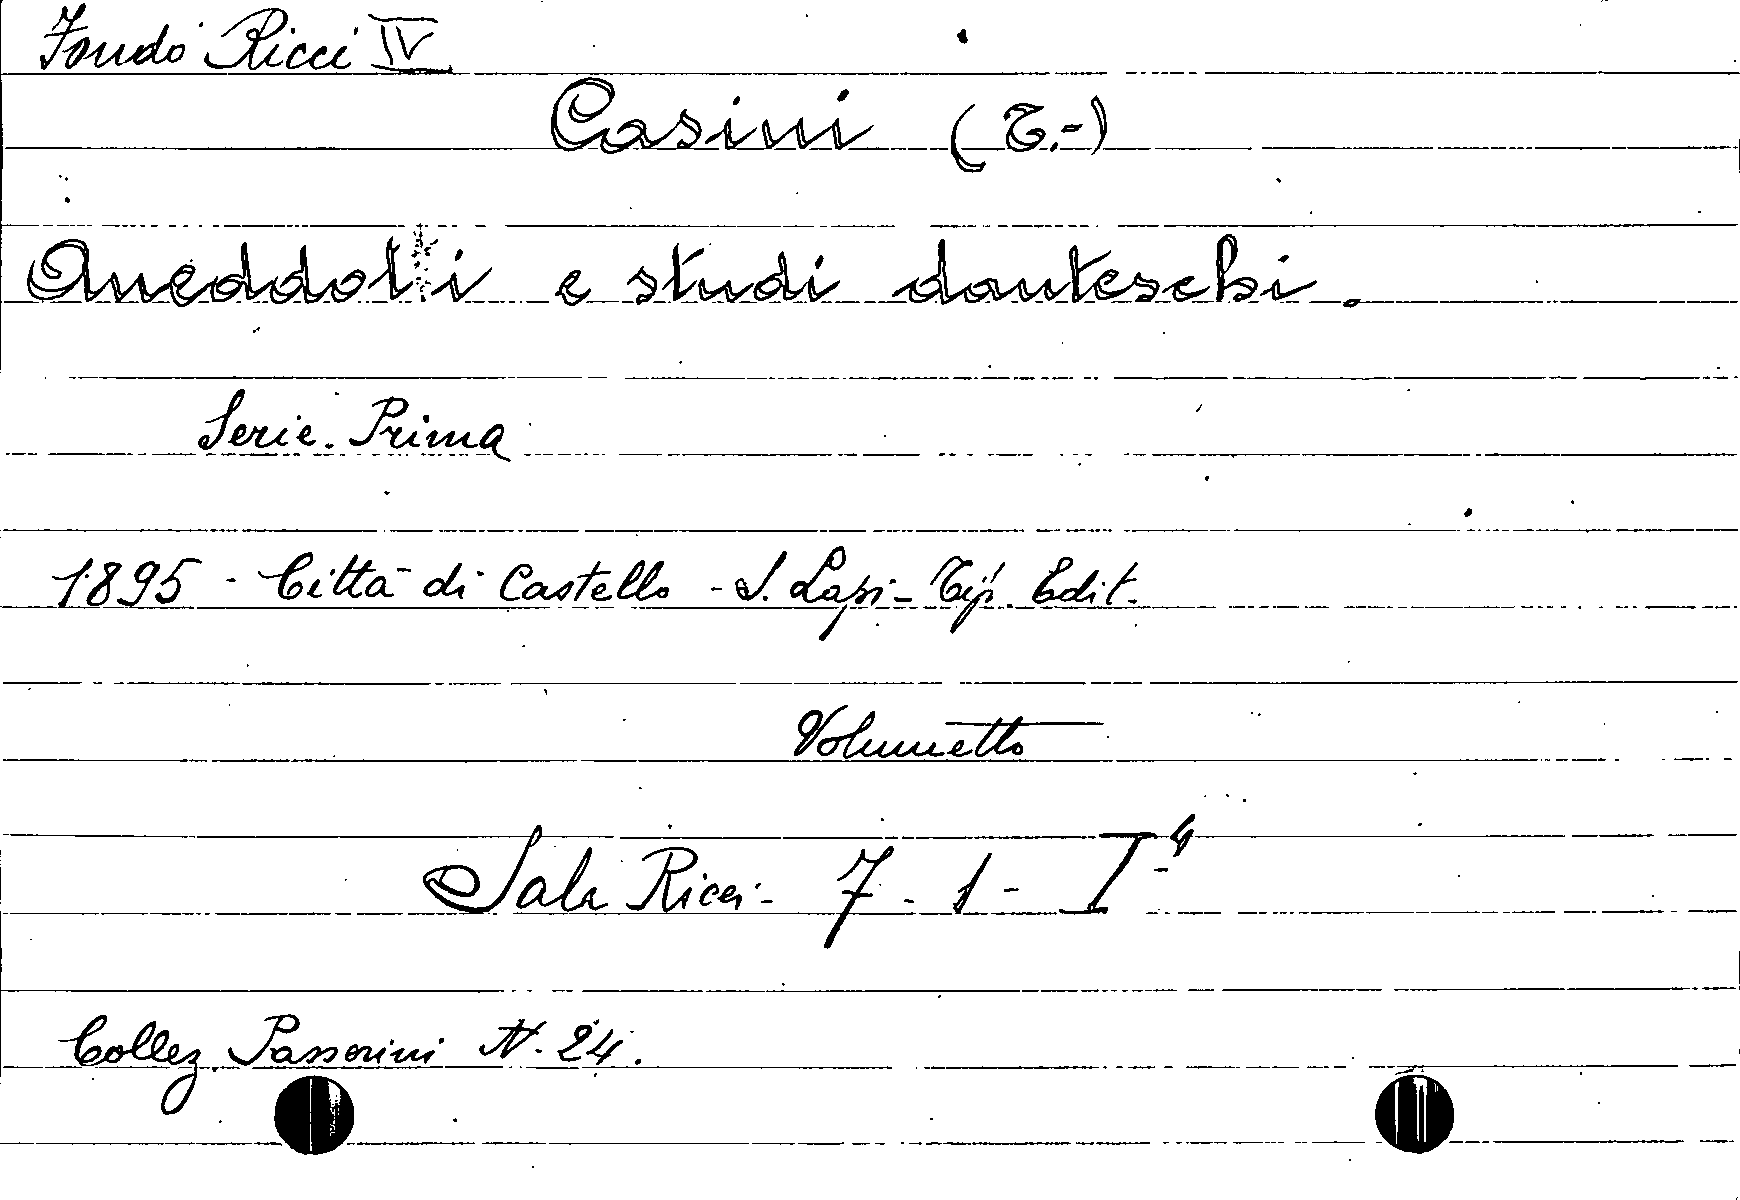 Fondo Ricci IV
Casini (T.-)
Aneddoti e studi danteschi.
Serie. Prima
1895 - Città di Castello - S. Lapi - Tip. Edit.
Volumetto
Sala Ricci - 7 - 1 - I-4
Collez. Passerini N. 24.